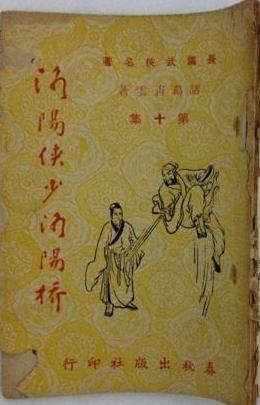 長篇武俠名著
諸葛青雲著
第十集
洛陽俠少洛陽橋
春秋出版社印行